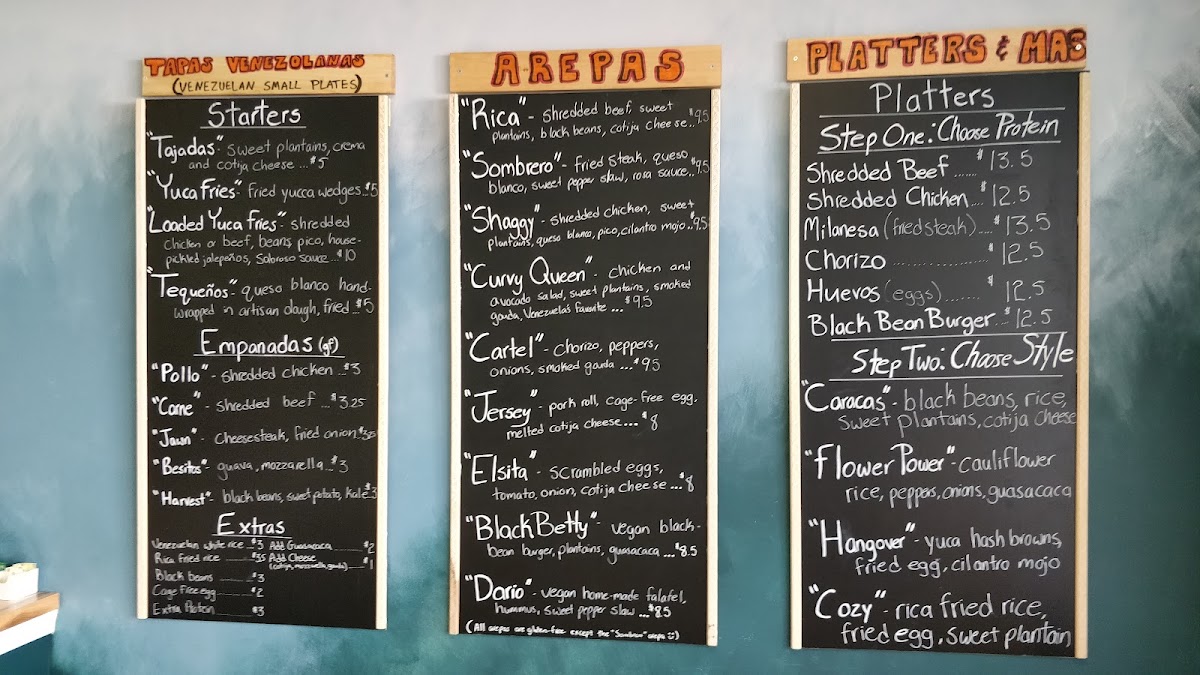 TAPAS VENEZOLANAS
(VENEZUELAN SMALL PLATES)
Starters
"Tajadas" - sweet plantains, crema
and cotija cheese ... $5
"Yuca Fries" fried yucca wedges...$5
"Loaded Yuca Fries" - shredded
chicken or beef, beans, pico, house-
pickled jalapeños, Sabroso sauce ... $10
"Tequeños" - queso blanco hand-
wrapped in artisan dough, fried ... $5
Empanadas (gf)
"Pollo" - shredded chicken ... $3
"Carne" - shredded beef ... $3.25
"Jawn" - cheesesteak, fried onion
"Besitos" - guava, mozzarella ... $3
"Harvest" - black beans, sweet potato, kale $3
Extras
Venezuelan white rice ... $3
Rica fried rice
Black beans $3
Cage Free egg $2
Extra Protein $3
Add Guasacaca $2
Add Cheese $1
(cotija, mozzarella, gouda)
AREPAS
"Rica" - shredded beef, sweet
plantains, black beans, cotija cheese .. $9.5
"Sombrero" - fried steak, queso
blanco, sweet pepper slaw, rosa sauce .. $9.5
"Shaggy" - shredded chicken, sweet
plantains, queso blanco, pico, cilantro mojo .. $9.5
"Curvy Queen" - chicken and
avocado salad, sweet plantains, smoked
gouda, Venezuela's favorite ... $9.5
"Cartel" - chorizo, peppers,
onions, smoked gouda ... $9.5
"Jersey" - pork roll, cage-free egg,
melted cotija cheese ... $8
"Elsita" - scrambled eggs,
tomato, onion, cotija cheese ... $8
"Black Betty" - vegan black-
bean burger, plantains, guasacaca ... $8.5
"Dario" - vegan home-made falafel,
hummus, sweet pepper slaw ... $8.5
(All arepas are gluten-free except the "Sombrero" arepa :))
PLATTERS & MAS
Platters
Step One: Choose Protein
Shredded Beef ...... $13.5
Shredded Chicken .... $12.5
Milanesa (fried steak) .... $13.5
Chorizo .................. $12.5
Huevos (eggs) ....... $12.5
Black Bean Burger ... $12.5
Step Two: Choose Style
"Caracas" - black beans, rice,
sweet plantains, cotija cheese
"Flower Power" - cauliflower
rice, peppers, onions, guasacaca
"Hangover" - yuca hash browns,
fried egg, cilantro mojo
"Cozy" - rica fried rice,
fried egg, sweet plantain